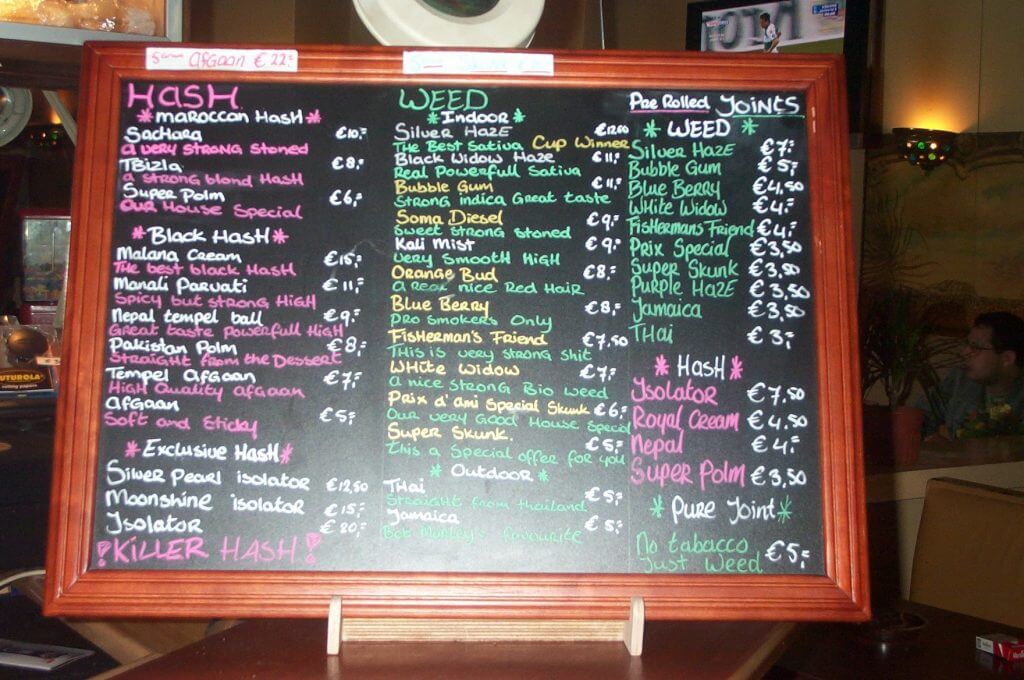 5 gram Afgaan € 22:-
HASH
*Maroccan Hash*
Sachara €10,-
a very strong stoned
Tbizla €8,-
a strong blond Hash
Super Polm €6,-
Our House Special
*Black Hash*
Malana Cream €15,-
The best black Hash
Manali Parvati €11,-
Spicy but strong High
Nepal tempel ball €9,-
Great taste powerfull High
Pakistan Polm €8,-
Straight from the Dessert
Tempel Afgaan €7,-
High Quality Afgaan
Afgaan €5,-
Soft and Sticky
*Exclusive Hash*
Silver Pearl isolator €12,50
Moonshine isolator €15,-
Isolator €20,-
!KILLER HASH!
WEED
*Indoor*
Silver Haze €12,00
The Best Sativa Cup Winner
Black Widow Haze €11,-
Real Powerfull Sativa
Bubble Gum €11,-
Strong indica Great taste
Soma Diesel €9,-
Sweet strong stoned
Kali Mist €9,-
Very smooth High
Orange Bud €8,-
A real nice Red Hair
Blue Berry €8,-
Pro smokers Only
Fisherman's Friend €7,50
This is very strong shit
White Widow €7,-
a nice strong Bio weed
Prix d'Ami Special Skunk €6,-
Our very Good House Special
Super Skunk. €5,-
This a Special offer for you
*Outdoor*
Thai €5,-
Straight from thailand
Jamaica €5,-
Bob Marley's favourite
Pre Rolled Joints
*WEED*
Silver Haze €7,-
Bubble Gum €5,-
Blue Berry €4,50
White Widow €4,-
Fishermans Friend €4,-
Prix Special €3,50
Super Skunk €3,50
Purple Haze €3,50
Jamaica €3,50
Thai €3,-
*Hash*
Isolator €7,50
Royal Cream €4,50
Nepal €4,-
Super Polm €3,50
*Pure Joint*
No tabacco €5,-
Just Weed
FUTUROLA
rolling papers